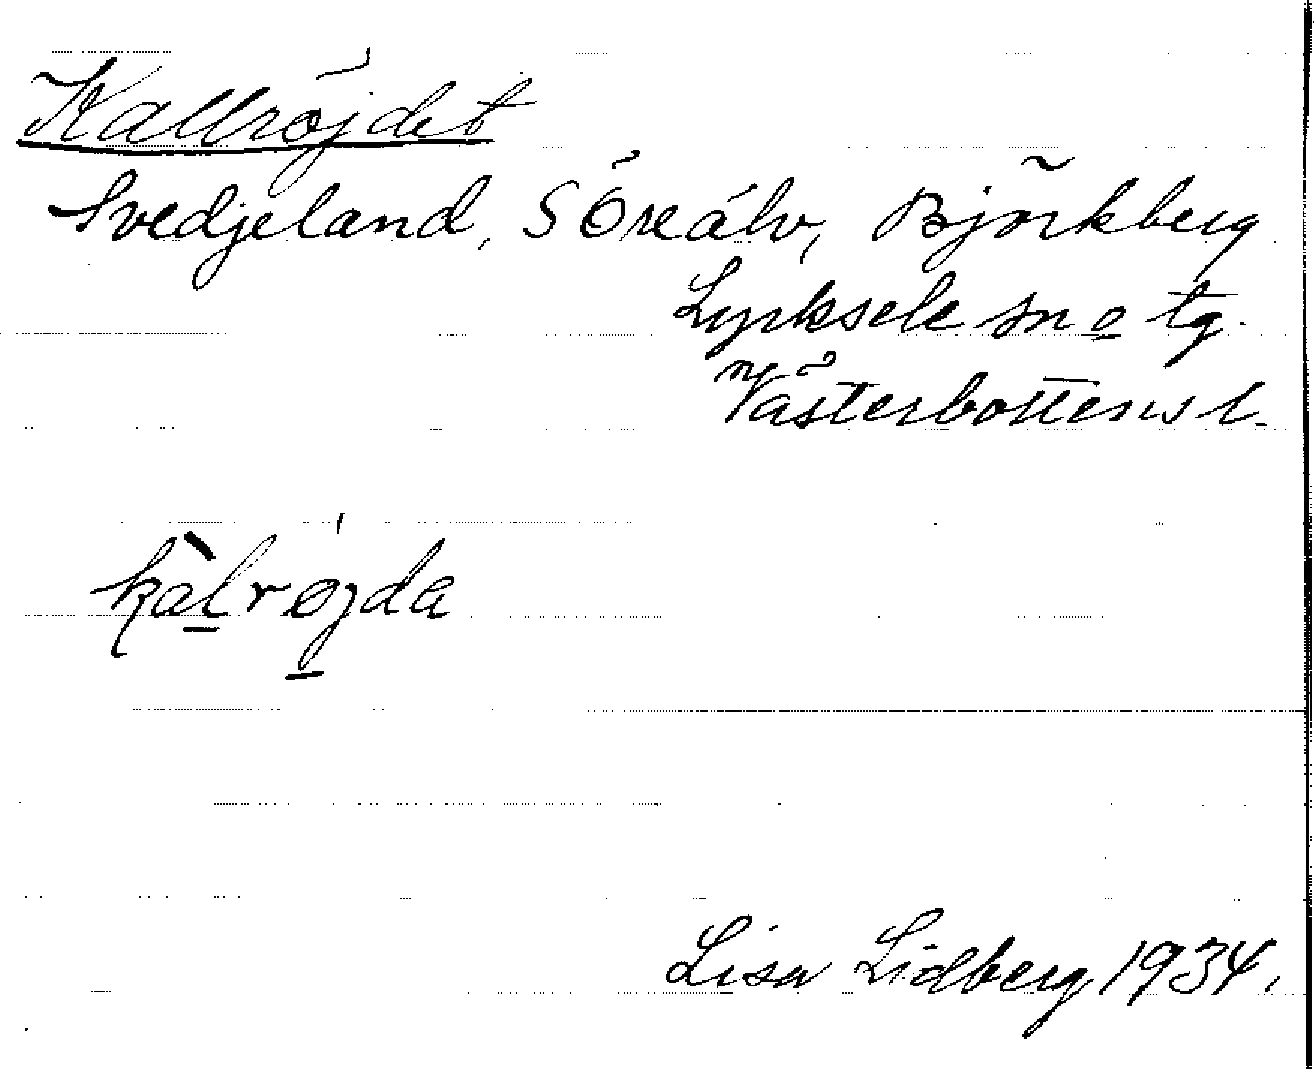 Kallröjdet
Svedjeland, S Öreälv, Björkberg
Lycksele sn o tg.
Västerbottens l.
kàlrøjda
Lisa Lidberg 1934.